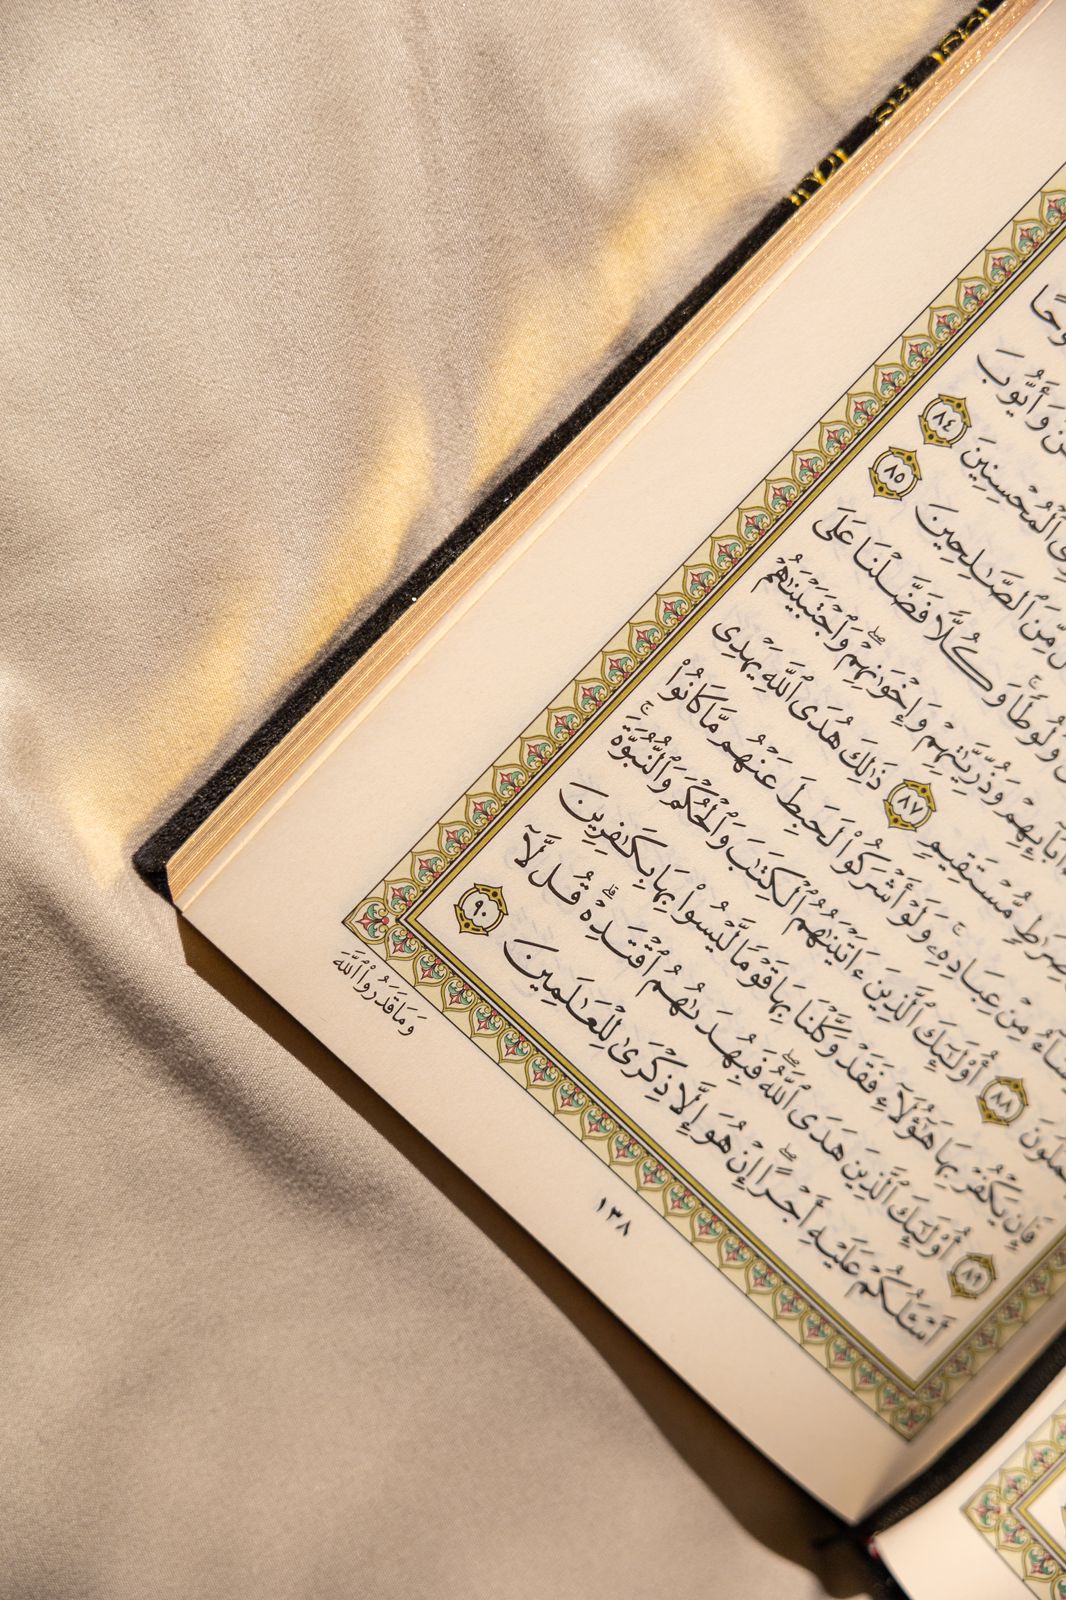 وَأَيُّوبَ
ٱلْمُحْسِنِينَ ٨٤
مِّنَ ٱلصَّٰلِحِينَ ٨٥
وَلُوطًا ۚ وَكُلًّا فَضَّلْنَا عَلَى
وَذُرِّيَّٰتِهِمْ وَإِخْوَٰنِهِمْ ۖ وَٱجْتَبَيْنَٰهُمْ
صِرَٰطٍ مُّسْتَقِيمٍ ٨٧ ذَٰلِكَ هُدَى ٱللَّهِ يَهْدِى
مِنْ عِبَادِهِۦ ۚ وَلَوْ أَشْرَكُوا۟ لَحَبِطَ عَنْهُم مَّا كَانُوا۟
٨٨ أُو۟لَٰٓئِكَ ٱلَّذِينَ ءَاتَيْنَٰهُمُ ٱلْكِتَٰبَ وَٱلْحُكْمَ وَٱلنُّبُوَّةَ ۚ
فَإِن يَكْفُرْ بِهَا هَٰٓؤُلَآءِ فَقَدْ وَكَّلْنَا بِهَا قَوْمًا لَّيْسُوا۟ بِهَا بِكَٰفِرِينَ
٨٩ أُو۟لَٰٓئِكَ ٱلَّذِينَ هَدَى ٱللَّهُ ۖ فَبِهُدَىٰهُمُ ٱقْتَدِهْ ۗ قُل لَّآ
أَسْـَٔلُكُمْ عَلَيْهِ أَجْرًا ۖ إِنْ هُوَ إِلَّا ذِكْرَىٰ لِلْعَٰلَمِينَ ٩٠
وَمَا قَدَرُوا۟ ٱللَّهَ
١٣٨